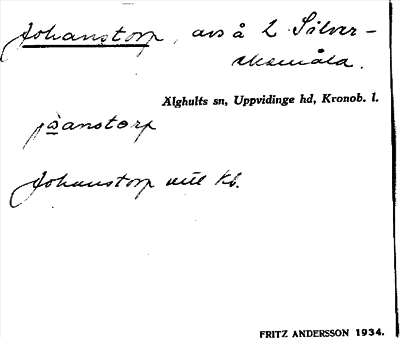 Johanstorp, avs å L. Silver-
eksmåla.
Älghults sn, Uppvidinge hd, Kronob. l.
jòanstorp
Johanstorp kb.
FRITZ ANDERSSON 1934.